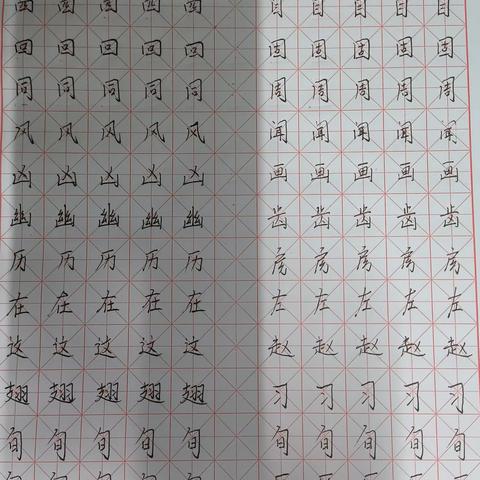 回 回 回 回 回 固 固 固 固 固
同 同 同 同 同 周 周 周 周 周
风 风 风 风 风 闻 闻 闻 闻 闻
凶 凶 凶 凶 凶 画 画 画 画 画
幽 幽 幽 幽 幽 齿 齿 齿 齿 齿
历 历 历 历 历 房 房 房 房 房
在 在 在 在 在 左 左 左 左 左
这 这 这 这 这 赵 赵 赵 赵 赵
翅 翅 翅 翅 翅 习 习 习 习 习
旬 旬 旬 旬 旬 旬 旬 旬 旬 旬